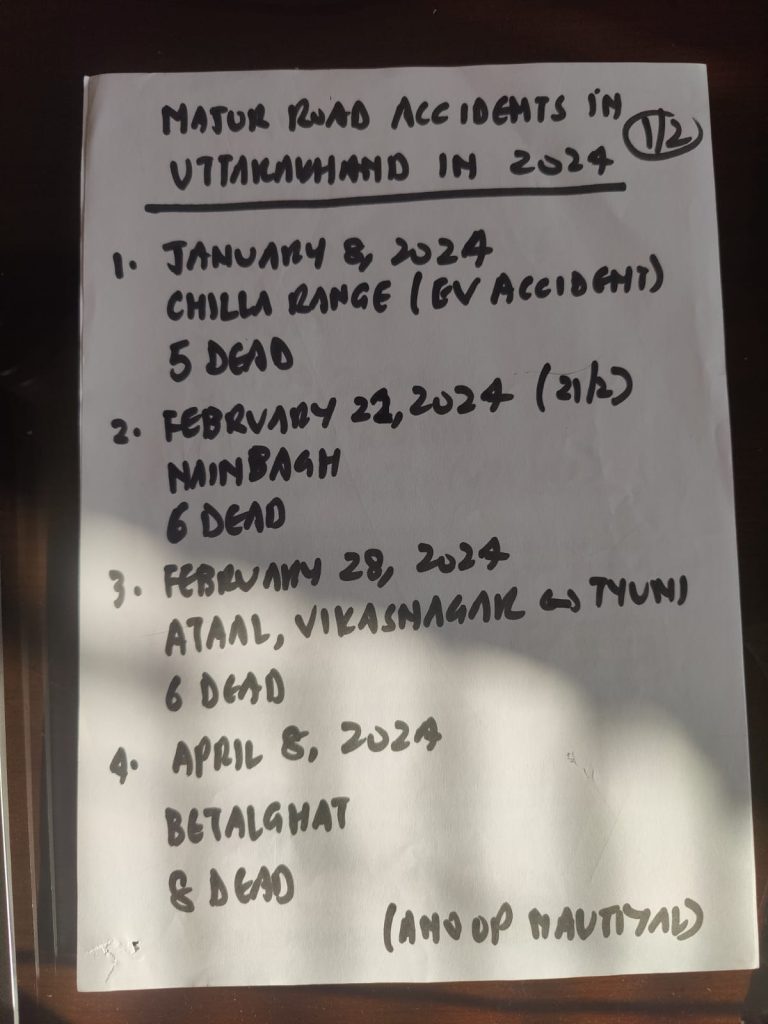 MAJOR ROAD ACCIDENTS IN
UTTARAKHAND IN 2024
1/2
1. JANUARY 8, 2024
CHILLA RANGE (EV ACCIDENT)
5 DEAD
2. FEBRUARY 21, 2024 (21/2)
NAINBAGH
6 DEAD
3. FEBRUARY 28, 2024
ATAAL, VIKASNAGAR ↔ TYUNI
6 DEAD
4. APRIL 8, 2024
BETALGHAT
8 DEAD
(ANOOP NAUTIYAL)